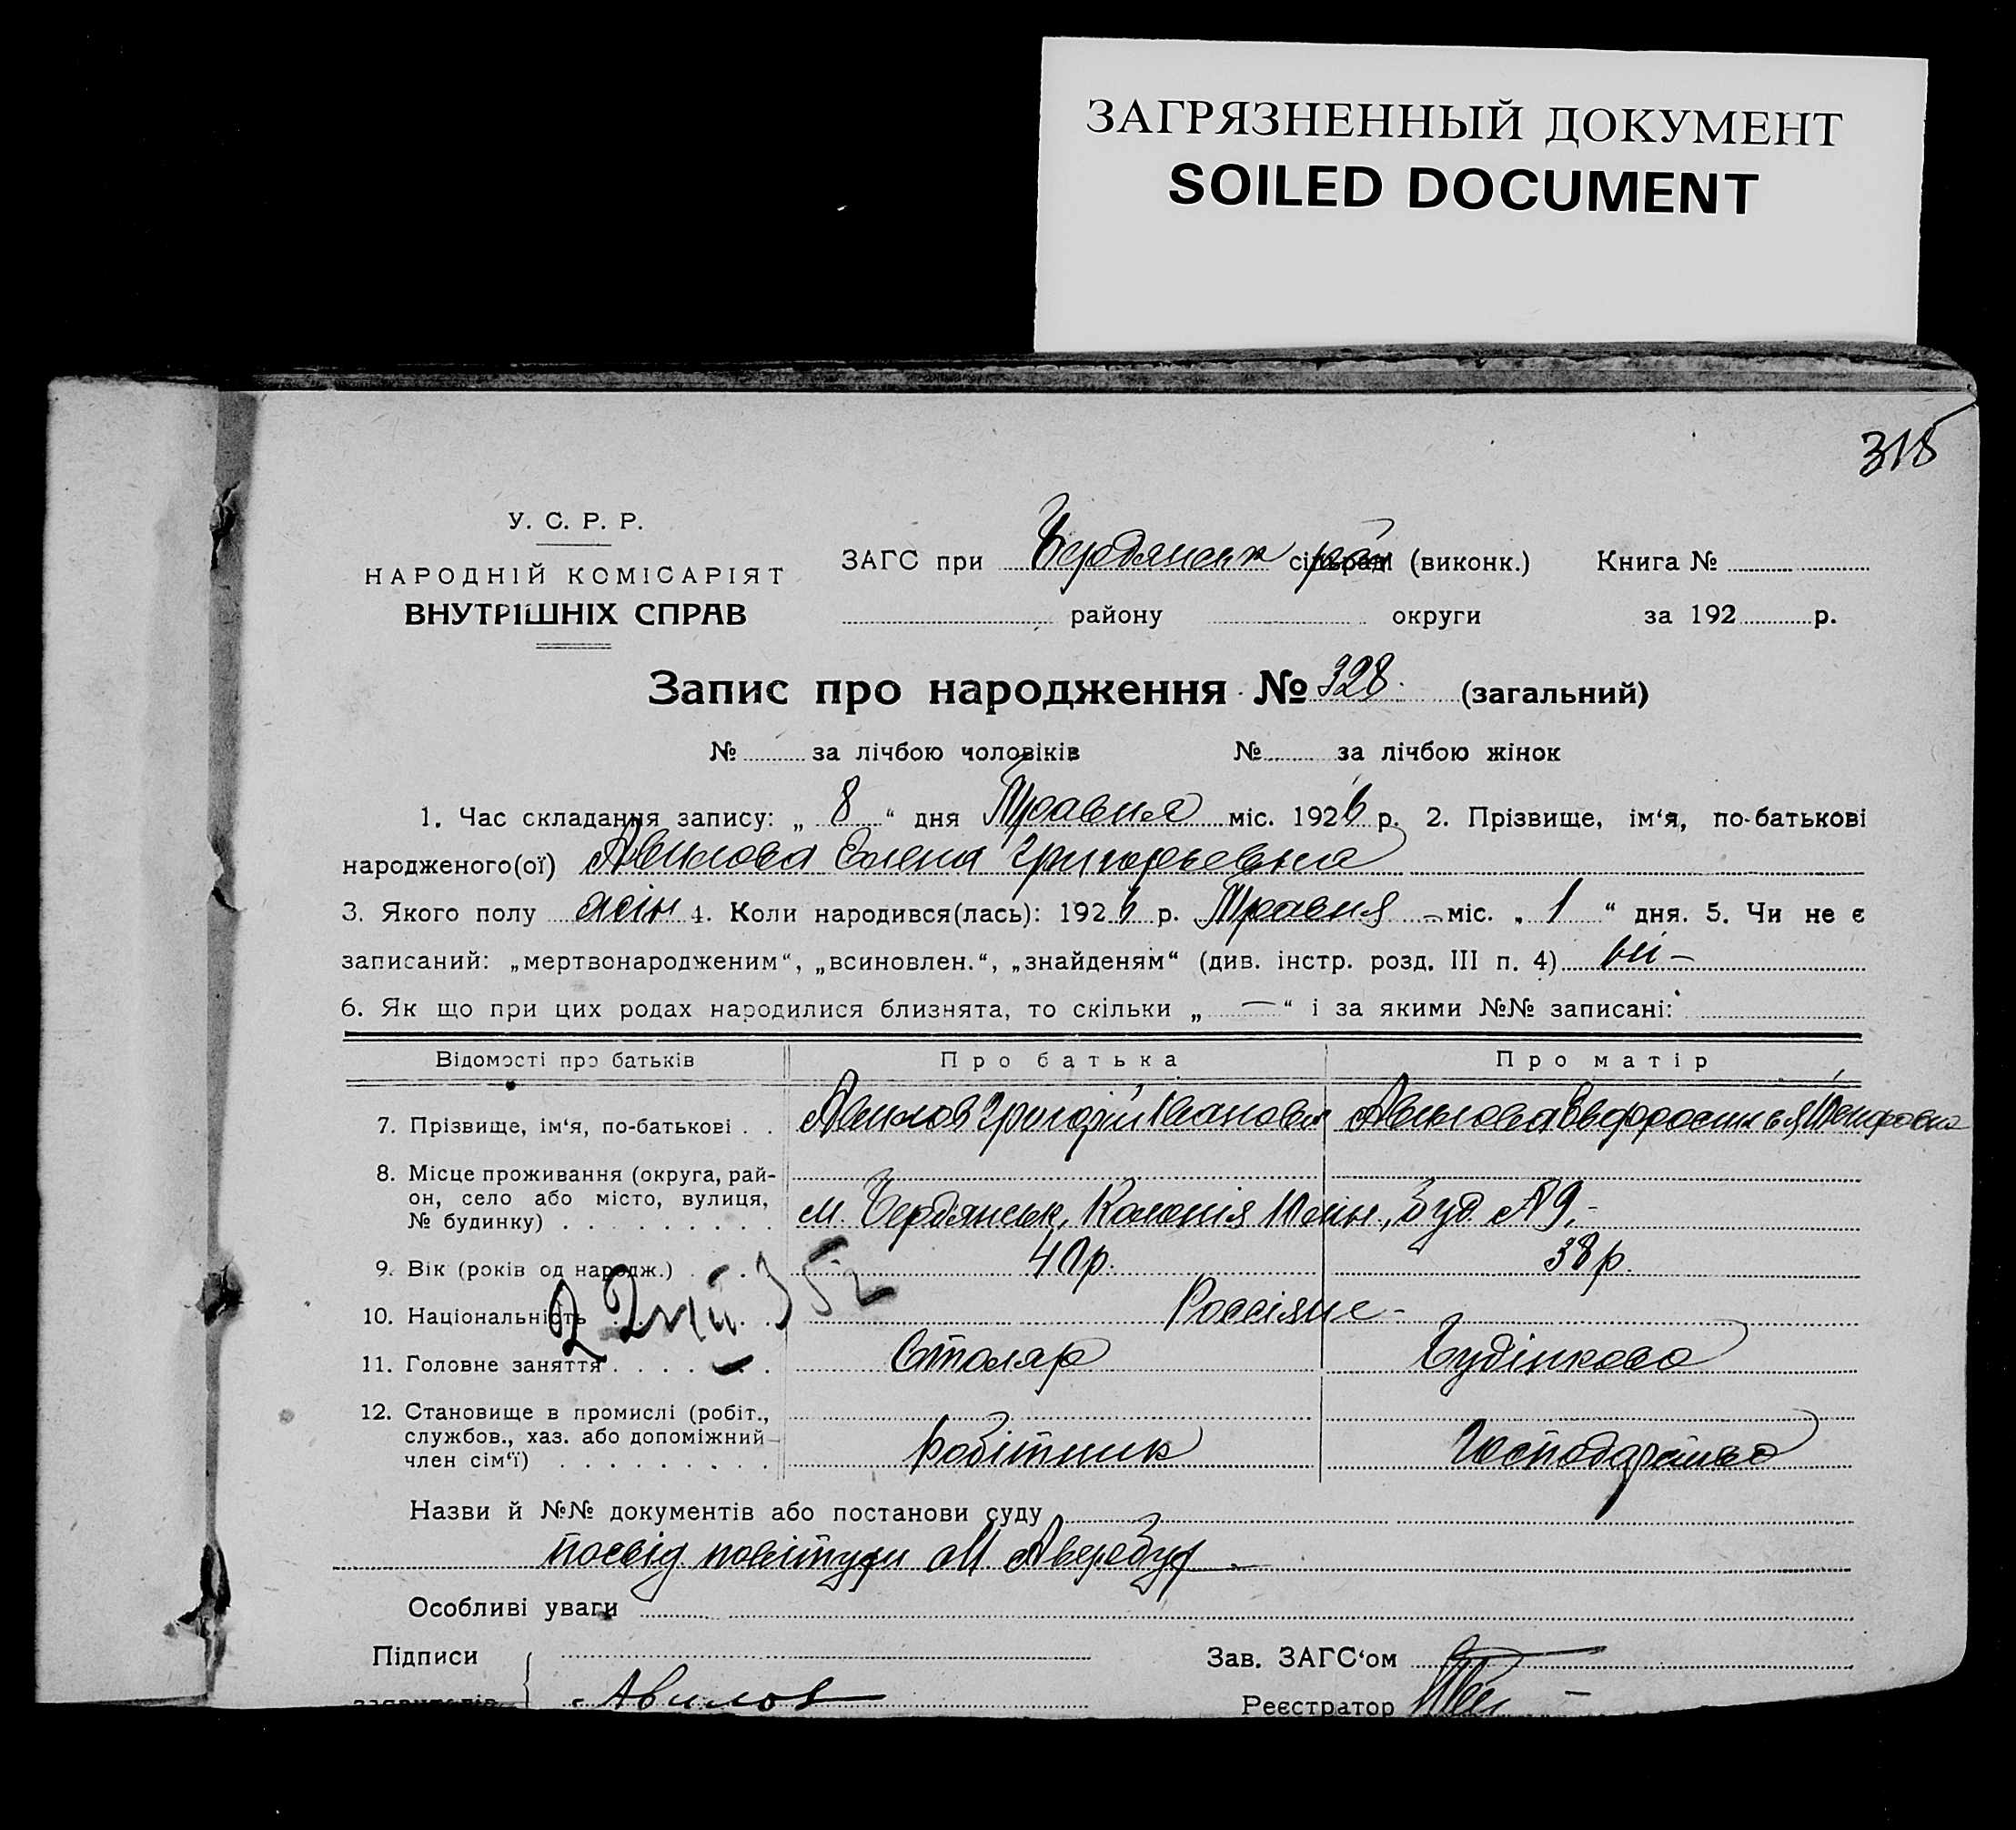 ЗАГРЯЗНЕННЫЙ ДОКУМЕНТ
SOILED DOCUMENT
315
У. С. Р. Р.
НАРОДНІЙ КОМІСАРІЯТ
ВНУТРІШНІХ СПРАВ
ЗАГС при Бердянськ сільраді рай (виконк.) Книга №
району округи за 192 р.
Запис про народження № 328. (загальний)
№ за лічбою чоловіків № за лічбою жінок
1. Час складання запису: „ 8 “ дня Травня міс. 1926 р. 2. Прізвище, ім‘я, по-батькові
народженого(ої) Авилова Елена Григорьевна
3. Якого полу жін 4. Коли народився(лась): 1926 р. Травня міс. „ 1 “ дня. 5. Чи не є
записаний: „мертвонародженим“, „всиновлен.“, „знайденям“ (див. інстр. розд. III п. 4) ні –
6. Як що при цих родах народилися близнята, то скільки „ — “ і за якими №№ записані:
Відомості про батьків Про батька Про матір
7. Прізвище, ім‘я, по-батькові . . Авилов Григорій Іванович Авилова
8. Місце проживання (округа, рай-
он, село або місто, вулиця,
№ будинку) . . . . . . . . . м. Бердянськ, Колонія буд. № 9,-
9. Вік (років од народж.) . . . 40 р. 38 р.
10. Національність Россіяне -
11. Головне заняття . . . . . . Столяр Будінкова
12. Становище в промислі (робіт.,
службов., хаз. або допоміжний
член сім‘ї) . . . . . . . . . робітник Господарська
Назви й №№ документів або постанови суду
посвід повітухи М Авербух –
Особливі уваги
Підписи Зав. ЗАГС‘ом
заявителів Авилов Реєстратор